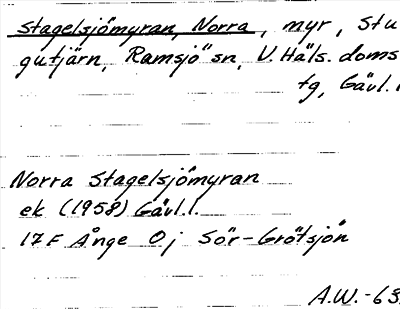 Stagelsjömyran, Norra, myr, Stu
gutjärn, Ramsjö sn, V. Häls. doms
tg, Gävl.
Norra Stagelsjömyran
ek (1958) Gävl.l.
17F Ånge 0j Sör-Grötsjön
A.W.-63